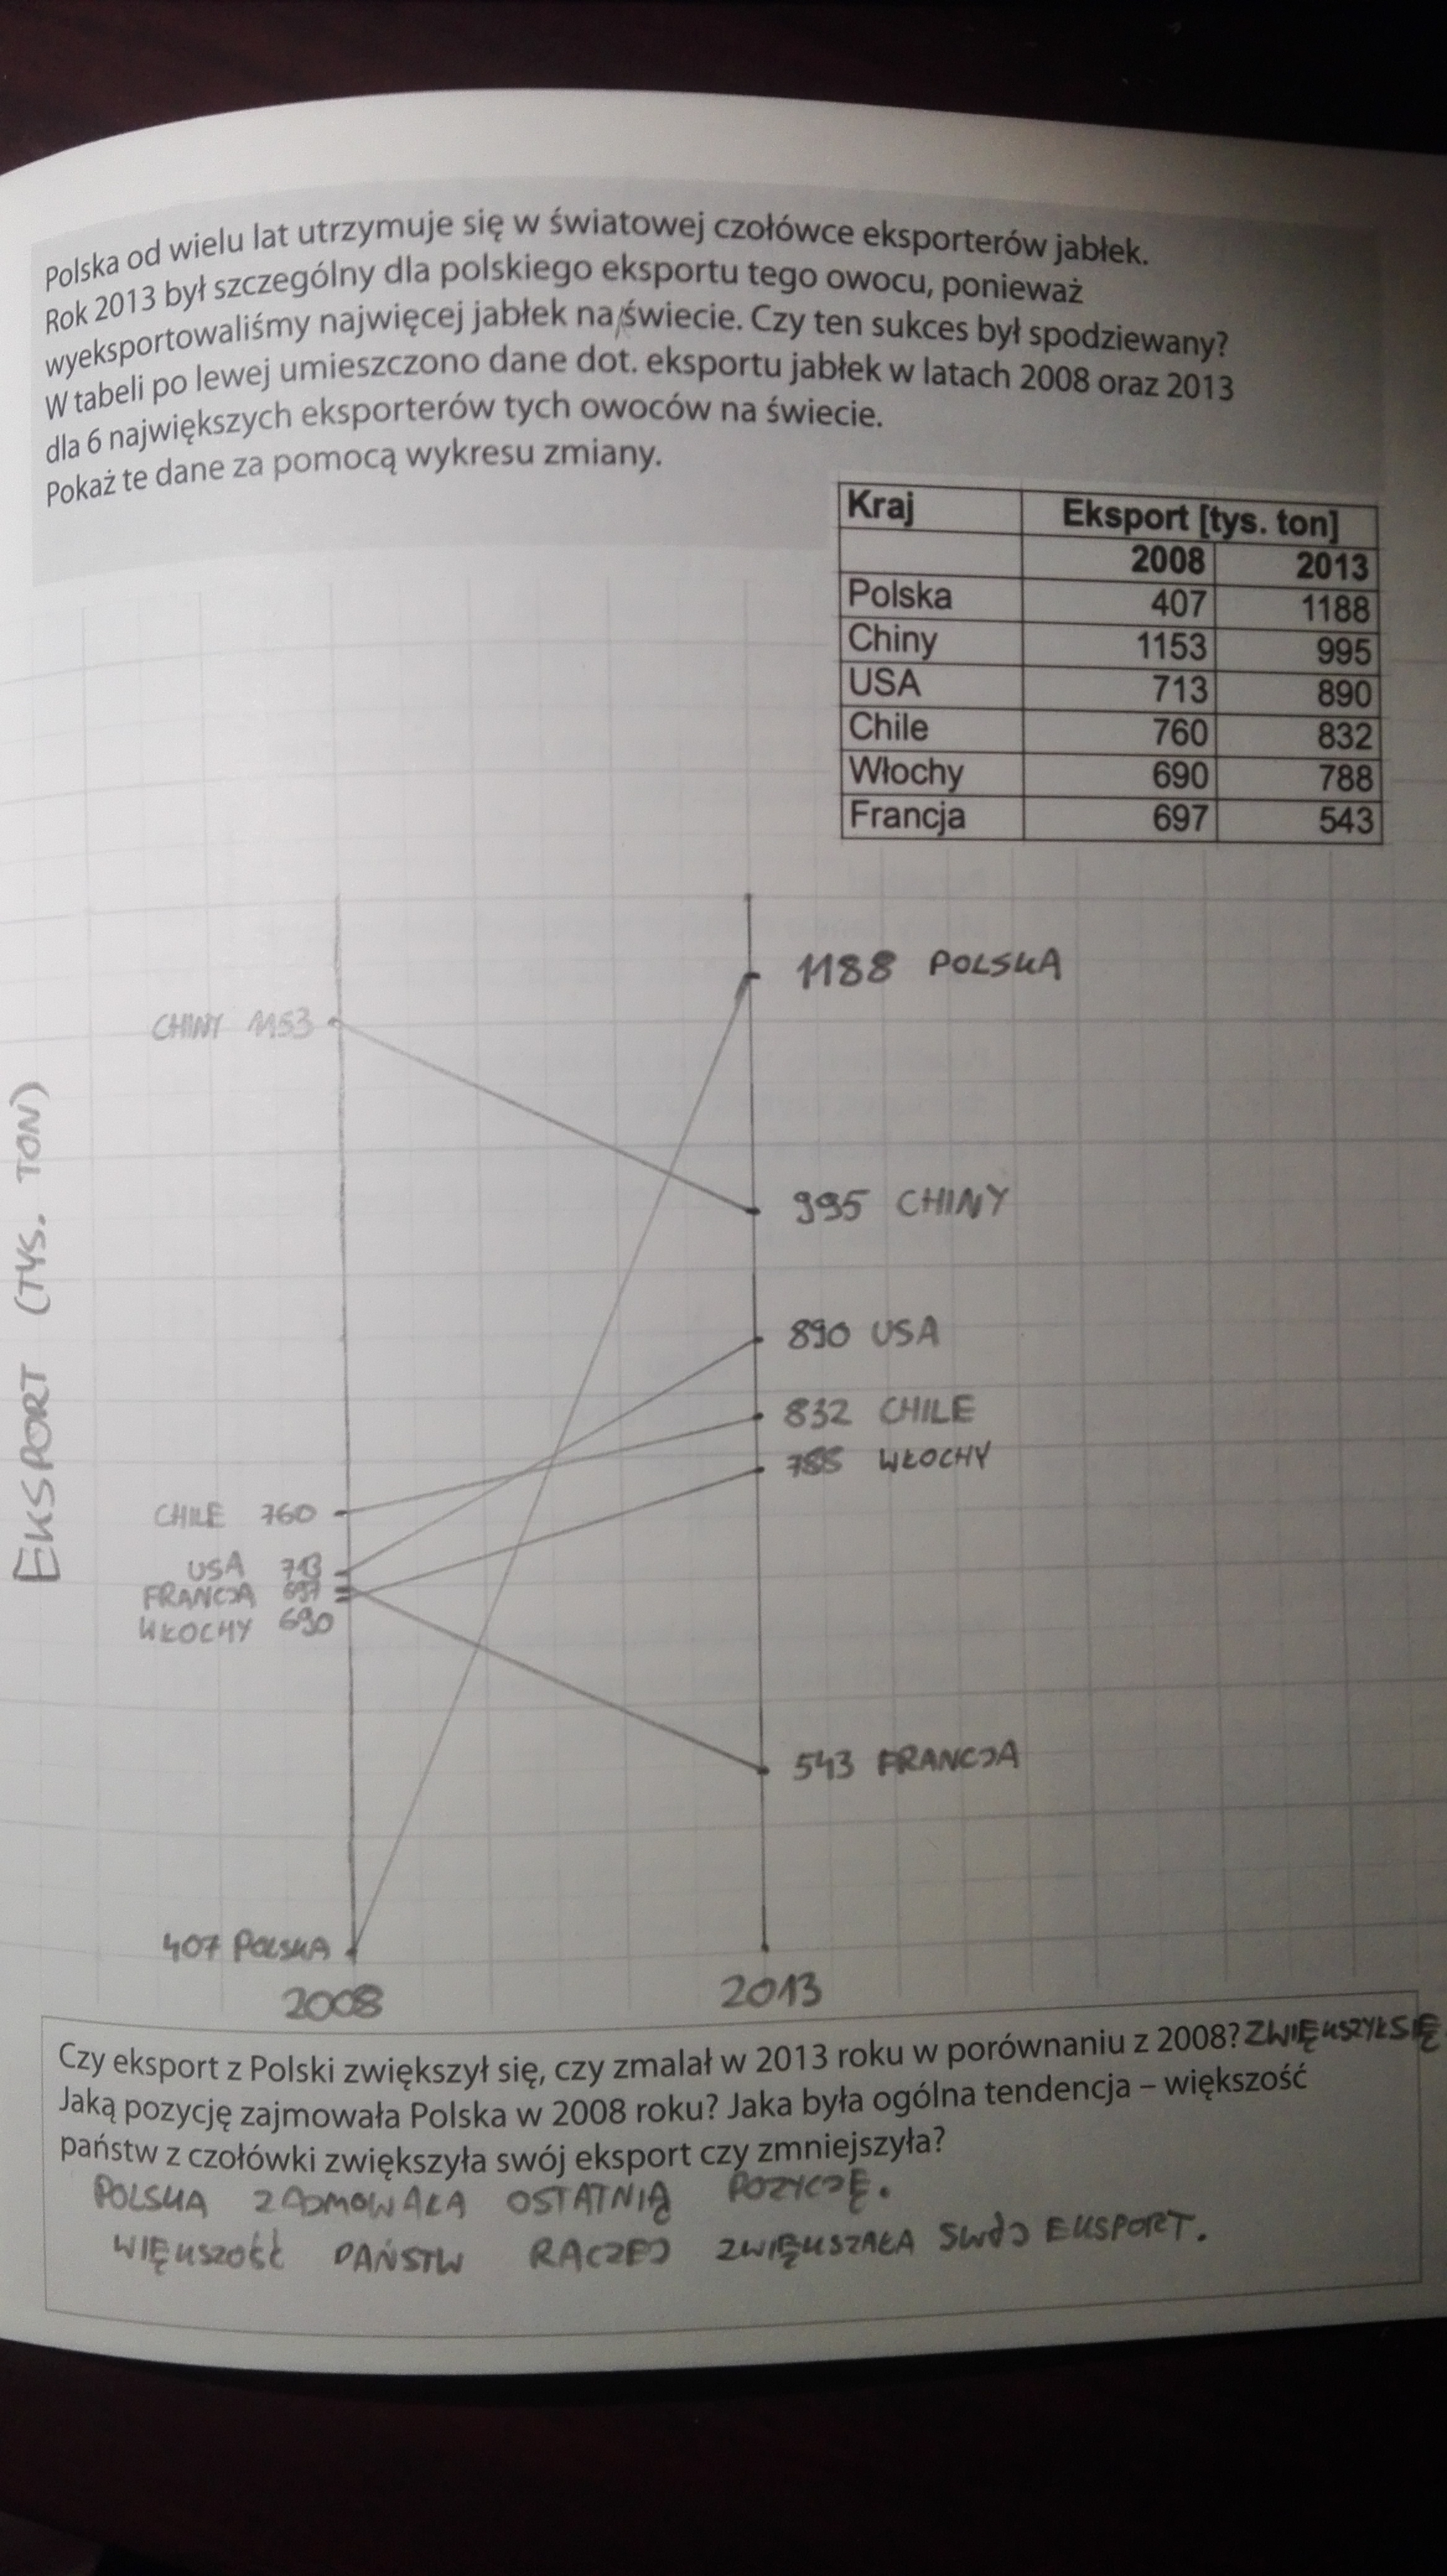 Polska od wielu lat utrzymuje się w światowej czołówce eksporterów jabłek.
Rok 2013 był szczególny dla polskiego eksportu tego owocu, ponieważ
wyeksportowaliśmy najwięcej jabłek na świecie. Czy ten sukces był spodziewany?
W tabeli po lewej umieszczono dane dot. eksportu jabłek w latach 2008 oraz 2013
dla 6 największych eksporterów tych owoców na świecie.
Pokaż te dane za pomocą wykresu zmiany.
Kraj Eksport [tys. ton]
2008 2013
Polska 407 1188
Chiny 1153 995
USA 713 890
Chile 760 832
Włochy 690 788
Francja 697 543
EKSPORT (TYS. TON)
1188 POLSKA
CHINY 1153
995 CHINY
890 USA
832 CHILE
788 WŁOCHY
CHILE 760
USA 713
FRANCJA 697
WŁOCHY 690
543 FRANCJA
407 POLSKA
2008 2013
Czy eksport z Polski zwiększył się, czy zmalał w 2013 roku w porównaniu z 2008? ZWIĘKSZYŁ SIĘ
Jaką pozycję zajmowała Polska w 2008 roku? Jaka była ogólna tendencja – większość
państw z czołówki zwiększyła swój eksport czy zmniejszyła?
POLSKA ZAJMOWAŁA OSTATNIĄ POZYCJĘ.
WIĘKSZOŚĆ PAŃSTW RACZEJ ZWIĘKSZAŁA SWÓJ EKSPORT.